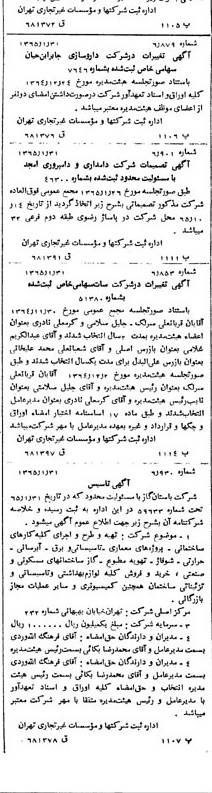 اداره ثبت شرکتها و مؤسسات غیرتجاری تهران
پ ۱۱۰۵ ق ۶۸۱۳۷۲
شماره ۶/۸۷۹ ۱۳۶۵/۱/۳۱
آگهی تغییرات درشرکت داروسازی جابرابن‌حیان
سهامی خاص ثبت‌شده بشماره ۷۶۴۶
باستناد صورتجلسه هیئت‌مدیره مورخ
کلیه اوراق و اسناد تعهدآور شرکت درصورت داشتن امضای دونفر
از اعضای موظف هیئت‌مدیره معتبر میباشد .
اداره ثبت شرکتها و مؤسسات غیرتجاری تهران
پ ۱۱۰۶ ق ۶۸۱۳۷۶
شماره ۶/۹۰۱ ۱۳۶۵/۱/۳۱
آگهی تصمیمات شرکت دامداری و دامپروری امجد
با مسئولیت محدود ثبت‌شده بشماره ۴۶۳۰۰
طبق صورتجلسه مورخ مجمع عمومی فوق‌العاده
شرکت مذکور تصمیماتی بشرح زیر اتخاذ گردید از تاریخ
محل شرکت در پاساژ رضوی طبقه دوم فرعی ۳۲
میباشد .
اداره ثبت شرکتها و مؤسسات غیرتجاری تهران
پ ۱۱۱۱ ق ۶۸۱۳۹۱
شماره ۶/۸۵۳ ۱۳۶۵/۱/۳۱
آگهی تغییرات درشرکت سات‌سهامی‌خاص ثبت‌شده
بشماره ۵۱۳۸۰
باستناد صورتجلسه مجمع عمومی مورخ
آقایان قربانعلی سرلک ـ جلیل سلامی و کرمعلی نادری بعنوان
اعضاء هیئت‌مدیره بمدت سال انتخاب شدند و آقای عبدالکریم
غلامی بعنوان بازرس اصلی و آقای شعبانعلی محمد علیخانی
بعنوان بازرس علی‌البدل برای مدت یکسال انتخاب شدند و طبق
صورتجلسه هیئت‌مدیره مورخ آقایان قربانعلی
سرلک بعنوان رئیس هیئت‌مدیره و آقای جلیل سلامتی بعنوان
نایب‌رئیس هیئت‌مدیره و آقای کرمعلی نادری بعنوان مدیرعامل
انتخاب‌شدند و طبق ماده ۱۷ اساسنامه اختیار امضاء اوراق
و چکها و قرارداد و غیره بعهده مدیرعامل با مهر شرکت‌میباشد
اداره ثبت شرکتها و مؤسسات غیرتجاری تهران
پ ۱۱۱۴ ق ۶۸۱۳۹۷
شماره ۶/۹۳۰ ۱۳۶۵/۱/۳۱
آگهی تاسیس
شرکت باستان‌گاز با مسئولیت محدود که در تاریخ ۶۵/۱/۳۱
تحت شماره ۵۹۶۳۳ در این اداره به ثبت رسیده و خلاصه
شرکتنامه آن بشرح زیر جهت اطلاع عموم آگهی میشود .
۱ - موضوع شرکت : تهیه و طرح و اجرای کلیه‌کارهای
ساختمانی ـ پروژه‌های معماری ـ تاسیساتی و برق ـ آبرسانی ـ
حرارتی ـ شوفاژ ـ تهویه مطبوع ـ گاز ساختمانهای مسکونی و
صنعتی ، خرید و فروش کلیه لوازم‌بهداشتی وتاسیساتی و
تزئیناتی ساختمان همچنین کمیسیونری و سایر عملیات مجاز
بازرگانی .
مرکز اصلی شرکت : تهران‌خیابان بهبهانی شماره ۲۳۲
۳ - سرمایه شرکت : مبلغ یکمیلیون ریال ۱۰۰۰۰۰۰ ریال
۴ - مدیران و دارندگان حق‌امضاء : آقای فرهنگ
بسمت مدیرعامل و آقای محمدرضا بکائی بسمت رئیس‌هیئت‌مدیره
۴ - مدیران و دارندگان حق‌امضاء : آقای فرهنگ
بسمت مدیرعامل و آقای محمدرضا بکائی بسمت رئیس هیئت
مدیره انتخاب و حق‌امضاء کلیه اوراق و اسناد تعهدآور
با مدیرعامل و رئیس هیئت‌مدیره متفقا با مهر شرکت معتبر
میباشد .
اداره ثبت شرکتها و مؤسسات غیرتجاری تهران
پ ۱۱۰۷ ق ۶۸۱۳۷۸